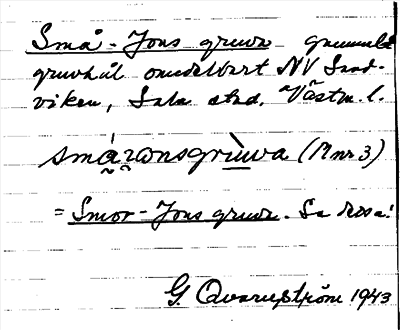 Små-Jons gruva gammalt
gruvhål omedelbart NV Sand-
viken, Sala stad. Västm. l.
småʒωnsgrùwa (M nr 3)
= Smor-Jons gruva. Se dessa!
G. Qvarnström 1943